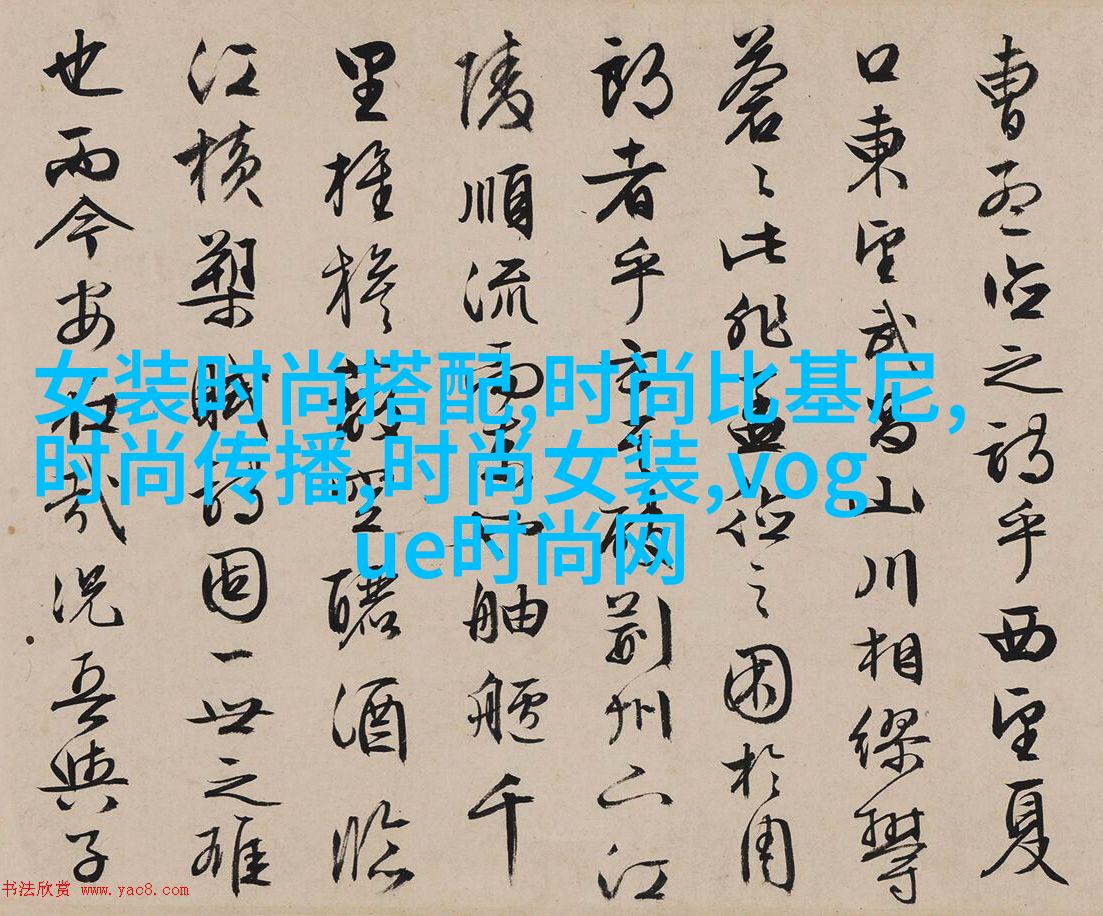 曹孟德之詩乎西望夏
口東望武昌山川相繆欝
蒼〻此非孟德之困於周
郎者乎方其破荊州下江
陵順流而東也舳艫千
里旌旗蔽空釃酒臨
江橫槊賦詩固一世之雄
也而今安在哉況吾與子
女装时尚搭配,时尚比基尼,
时尚传播,时尚女装,vog
ue时尚网
书法欣赏 www.yac8.com